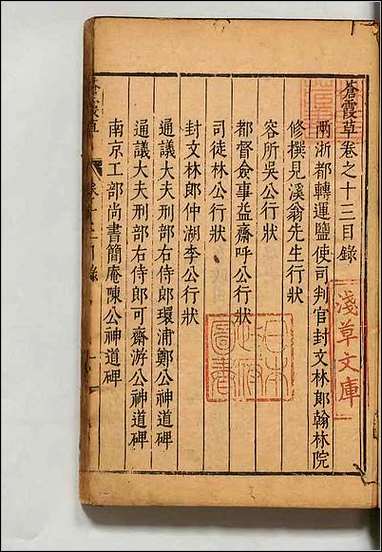 蒼霞草卷之十三目錄
兩浙都轉運鹽使司判官封文林郎翰林院
修撰見溪翁先生行狀
容所吳公行狀
都督僉事益齋呼公行狀
司徒林公行狀
封文林郎仲湖李公行狀
通議大夫刑部右侍郎環浦鄭公神道碑
通議大夫刑部右侍郎可齋游公神道碑
南京工部尚書簡庵陳公神道碑
淺草文庫
日本
政府
圖書